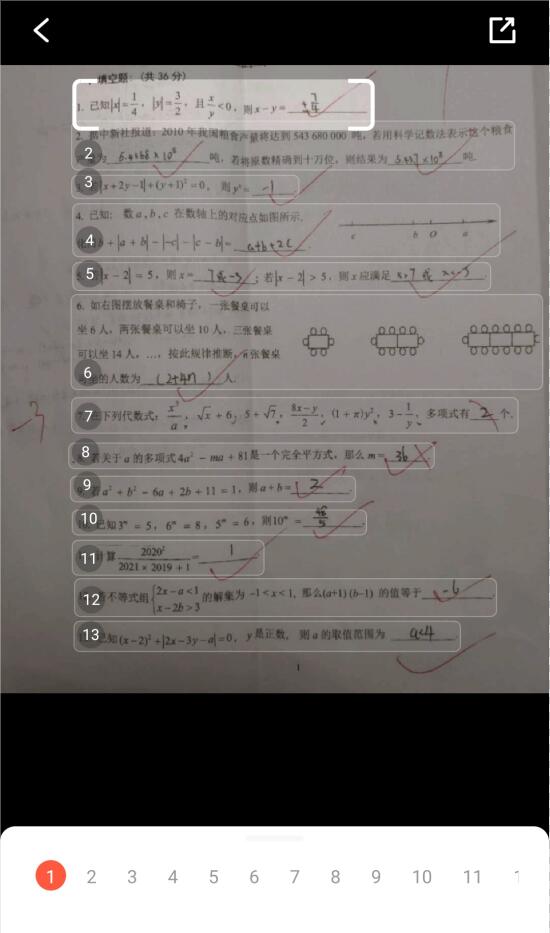 填空题：(共 36 分)
1. 已知|x|=1/4，|y|=3/2，且 x/y<0，则 x－y= ±7/4
2. 据中新社报道：2010 年我国粮食产量将达到 543 680 000 吨，若用科学记数法表示这个粮食
2 5.4368×10⁸ 吨，若将原数精确到十万位，则结果为 5.437×10⁸ 吨.
3 |x+2y－1|+(y+1)²=0，则 yˣ= －1
4. 已知：数 a,b,c 在数轴上的对应点如图所示，
c b O a
4 b+|a+b|－|－c|－|c－b|= a+b+2c .
5 |x－2|=5，则 x= 7或-3 ；若|x－2|>5，则 x 应满足 x>7 或 x<-3 .
6. 如右图摆放餐桌和椅子，一张餐桌可以
坐 6 人，两张餐桌可以坐 10 人，三张餐桌
可以坐 14 人，…，按此规律推断，n 张餐桌
6 的人数为 (2+4n) 人.
-3
7 下列代数式：x³/a，√x+6，5+√7，(8x－y)/2，(1+π)y²，3－1/y，多项式有 2 个.
8 若关于 a 的多项式 4a²－ma+81 是一个完全平方式，那么 m= 36
9 若 a²+b²－6a+2b+11=1，则 a+b= 2 .
10 已知 3ᵐ=5，6ᵐ=8，5ᵐ=6，则10ᵐ= 48/5 .
11 计算 2020²/(2021×2019+1)= 1
12 不等式组{2x－a<1 x－2b>3 的解集为 －1<x<1，那么(a+1)(b－1) 的值等于 -6 .
13 已知(x－2)²+|2x－3y－a|=0，y 是正数，则 a 的取值范围为 a<4 .
1
1 2 3 4 5 6 7 8 9 10 11